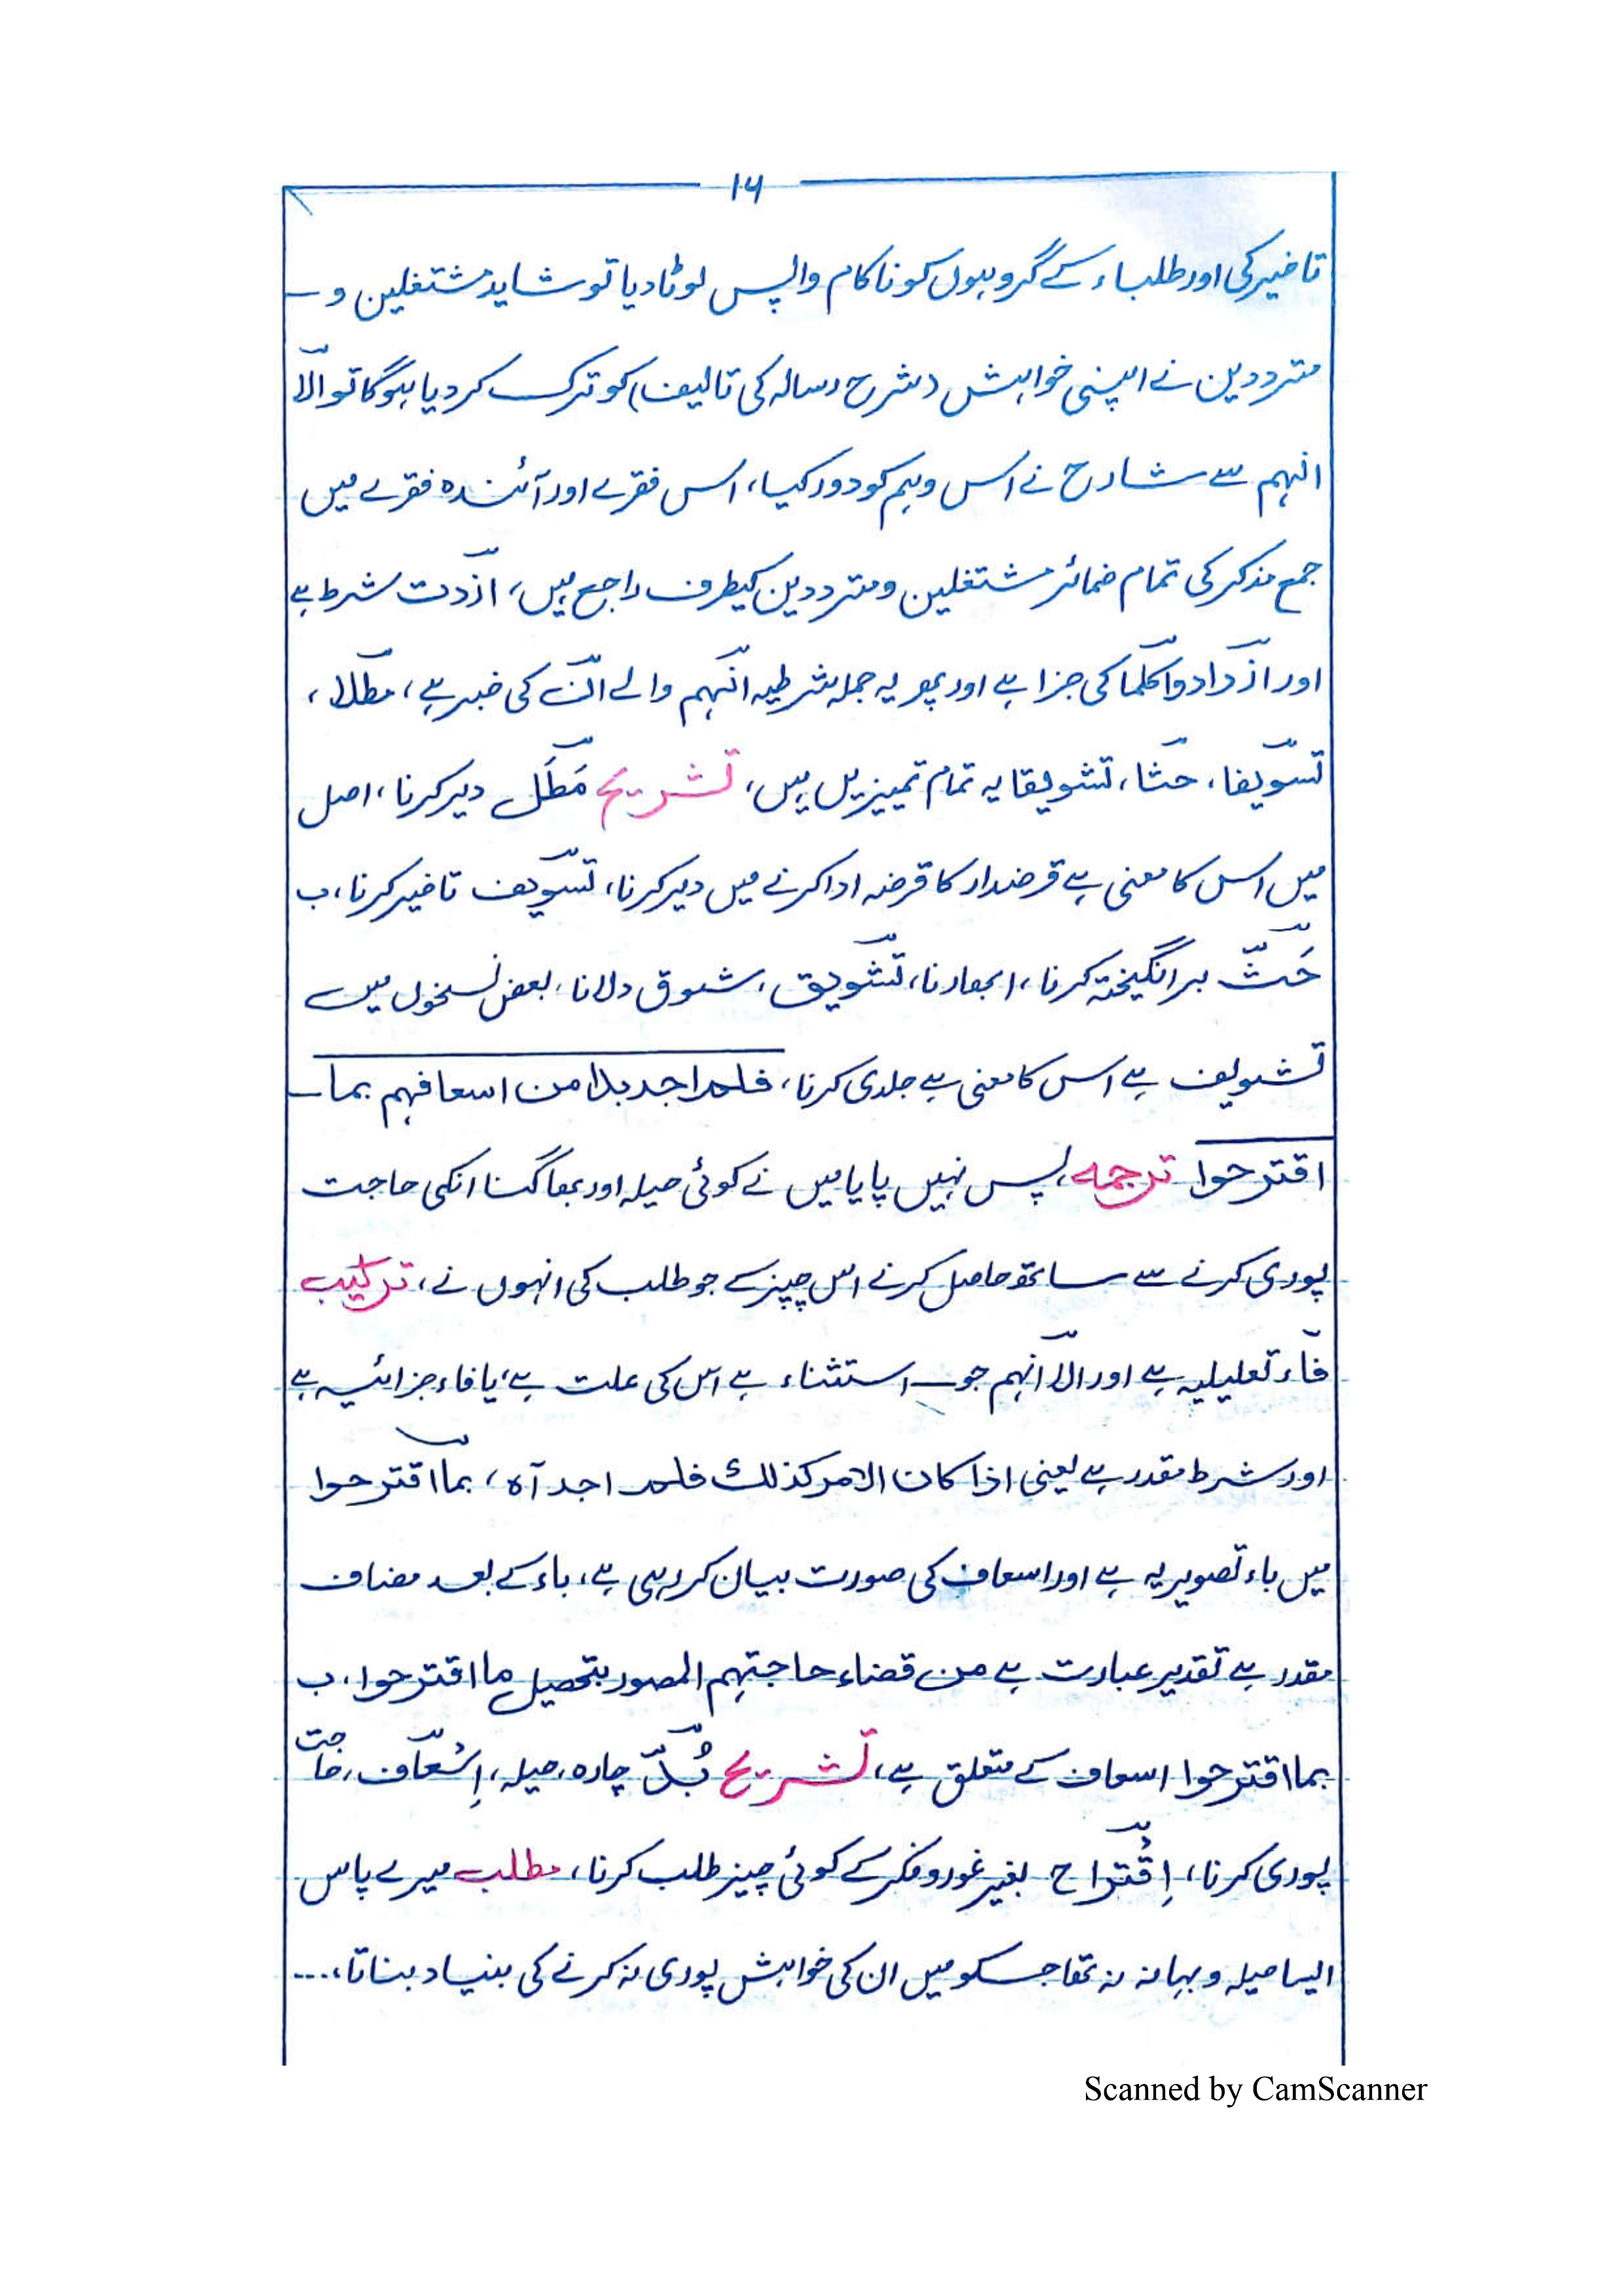 ۱۶
تاخیر کی اور طلباء کے گروہوں کو ناکام واپس لوٹا دیا تو شاید مشتغلین و
مترددین نے اپنی خواہش (شرح رسالہ کی تالیف) کو ترک کر دیا ہوگا تو الّا
انہم سے شارح نے اس وہم کو دور کیا، اس فقرے اور آئندہ فقرے میں
جمع مذکر کی تمام ضمائر مشتغلین و مترددین کیطرف راجع ہیں، ازددت شرط ہے
اور ازدادوا کلما کی جزا ہے اور پھر یہ جملہ شرطیہ انّہم والے انّ کی خبر ہے، مطلا،
تسویفا، حثا، تشویقا یہ تمام تمیزیں ہیں، تشریح مَطَل دیر کرنا، اصل
میں اس کا معنی ہے قرضدار کا قرضہ ادا کرنے میں دیر کرنا، تسویف تاخیر کرنا، ب
حَثّ برانگیختہ کرنا، ابھارنا، تشویق، شوق دلانا، بعض نسخوں میں
تشویف ہے اس کا معنی ہے جلدی کرنا، فلم اجد بدا من اسعافہم بما
اقترحوا ترجمہ، پس نہیں پایا میں نے کوئی حیلہ اور بھاگنا انکی حاجت
پوری کرنے سے ساتھ حاصل کرنے اس چیز کے جو طلب کی انہوں نے، ترکیب
فاء تعلیلیہ ہے اور الّا انہم جو استثناء ہے اس کی علت ہے، یا فاء جزائیہ ہے
اور شرط مقدر ہے یعنی اذا کان الامر کذلک فلم اجد آہ، بما اقترحوا
میں باء تصویریہ ہے اور اسعاف کی صورت بیان کر رہی ہے، باء کے بعد مضاف
مقدر ہے تقدیر عبارت ہے من قضاء حاجتہم المصور بتحصیل ما اقترحوا، ب
بما اقترحوا اسعاف کے متعلق ہے، تشریح بُدّ چارہ، حیلہ، اِسْعاف، حاجت
پوری کرنا، اِقْتراح بغیر غور و فکر کے کوئی چیز طلب کرنا، مطلب میرے پاس
ایسا حیلہ و بہانہ نہ تھا جسکو میں ان کی خواہش پوری نہ کرنے کی بنیاد بناتا،...
Scanned by CamScanner